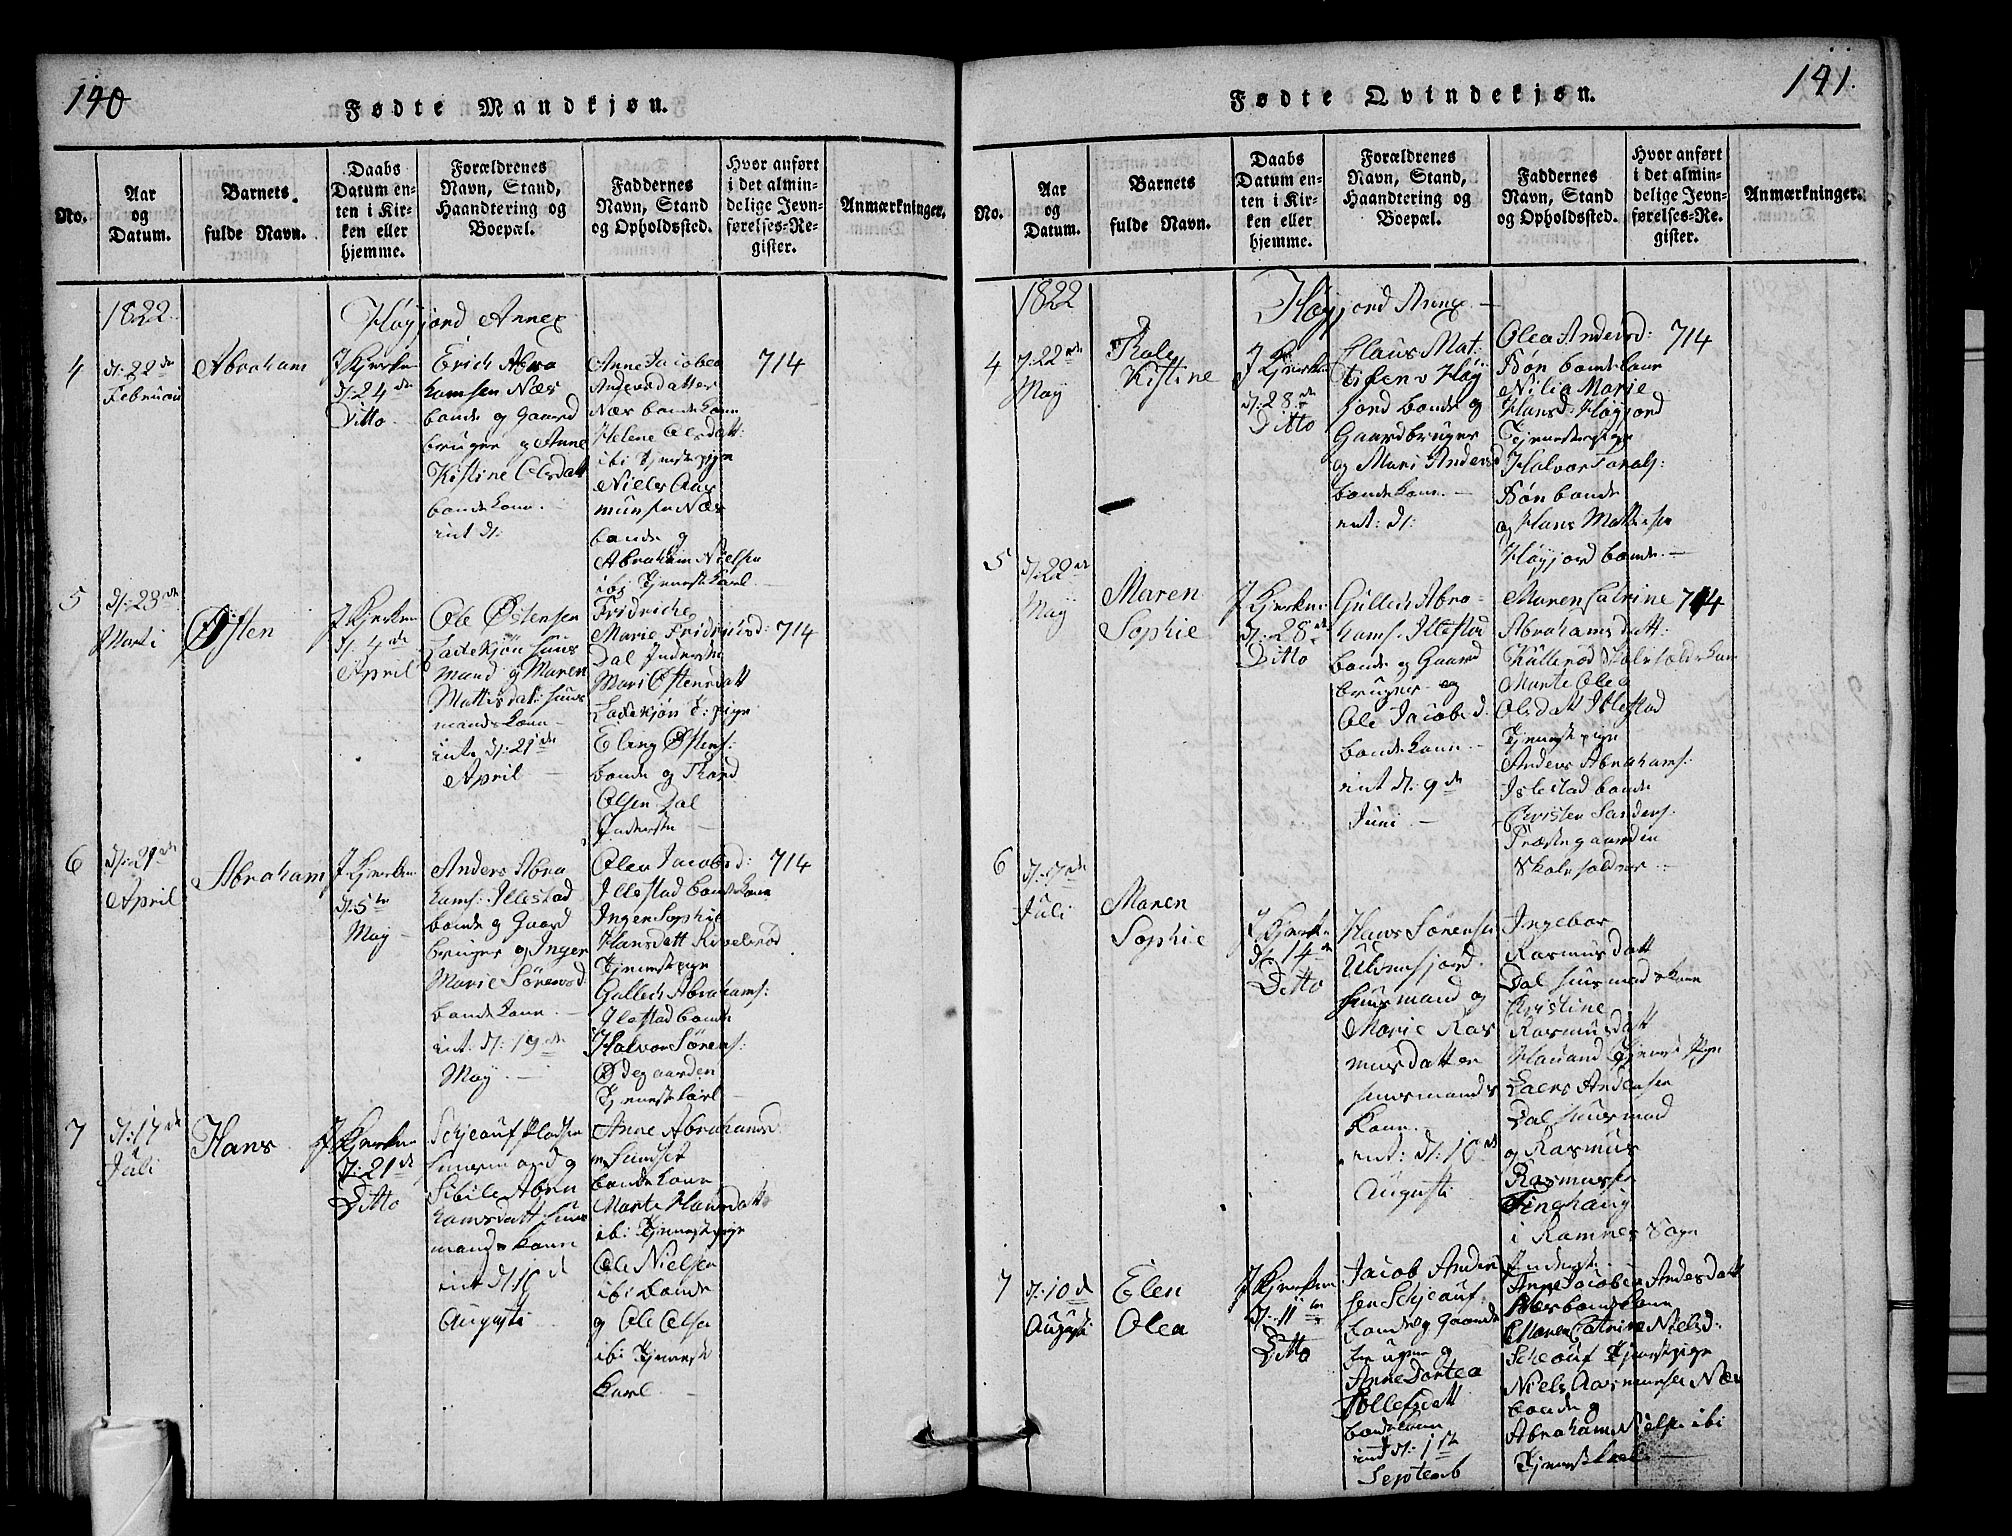 140
Fødte Mandkjøn.
No.
Aar og Datum.
Barnets fulde Navn.
Daabs Datum enten i Kirken eller hjemme.
Forældrenes Navn, Stand, Haandtering og Boepæl.
Faddernes Navn, Stand og Opholdssted.
Hvor anført i det almindelige Jevnførelses-Register.
Anmærkninger.
1822.
Høyjord Annex
4
d: 22de
Februari
Abraham
J Kjerken
d: 24de
Ditto
Erich Abra
hamsen Næs
bonde og Gaard
bruger og Anne
Kistine Olsdatt
bondekone. –
int d:
Anne Jacobea
Andersdatter
Næs bondekone
Helene Olsdatt:
ibi Tjenestepige
Niels Aas
munsen Næs
bonde og
Abraham Nielsen
ibi Tjenestekarl –
714
5
d: 23de
Marti
Østen
J Kjerken
d: 4de
April
Ole Østensen
Ladekjøn Huus
mand og Maren
Mattisdat: Huus
mandskone –
int. d: 21de
April –
Fridriche
Marie Fridrichsd:
Dal Inderste
Mari Østensdatt
Ladekjøn T: pige
Eling Østens:
bonde og Thord
Olsen Dal
Inderste –
714
6
d: 21de
April
Abraham
J Kjerken
d: 5te
May –
Anders Abra
hams: Illestad
bonde og Gaard
bruger og Inger
Marie Sørensd:
bondekone. –
int. d: 19de
May. –
Olea Jacobsd:
Illestad bondekone
Inger Sophie
Hansdatt
Tjenestepige
Gullech Abrahams:
Ilestad bonde
Halvor Sørens:
Ødegaarden
Tjenestekarl –
714
7
d: 17de
Juli
Hans
J Kjerken
d: 21de
Ditto
Huusmand og
Sibile Abra
hamsdatt Huus
mandskone
int d: 18d
Augusti
Anne Abrahamsd
bondekone
Marte Hansdatt
ibi Tjenestepige
Ole Nielsen
ibi bonde
og Ole Olsen
ibi Tjeneste
karl –
141.
Fødte Qvindekjøn.
No.
Aar og Datum.
Barnets fulde Navn.
Daabs Datum enten i Kirken eller hjemme.
Forældrenes Navn, Stand, Haandtering og Boepæl.
Faddernes Navn, Stand og Opholdssted.
Hvor anført i det almindelige Jevnførelses-Register.
Anmærkninger.
1822
Høyjord Annex –
4
d: 22de
May
Kistine
J Kjerken
d: 28de
Ditto
Claus Mat:
tisen Høy
jord bonde og
Gaardbruger
og Mari Andersd
bondekone –
int: d:
Olea Andersd:
Bøn bondekone
Nilia Marie
Hansd: Høyjord
Tjenestepige
Bøn bonde
og Hans Mathisen
Høyjord bonde. –
714
5
d: 22de
May
Maren
Sophie
J Kjerken
d: 28de
Ditto
Gullech Abra-
hams: Illestad
bonde og Gaard
bruger og
Ole Jacobsd:
bondekone –
int d: 9de
Juni –
Maren Catrine
Abrahamsdatt:
Marte Olea
Olsdatt Illestad
Tjenestepige
Anders Abrahams:
Islestad bonde
Christen Sanders:
Præstegaarden
Skoleholder –
714
6
d: 17de
Juli
Maren
Sophie
J Kjerken
d: 14de
Ditto
Hans Sørensen
huusmand og
Marie Ras
musdatter
huusmands
kone.
int: d: 10de
Augusti
Ingebor
Rasmusdatt
Dal huusmandskone
Christine
Rasmusdatt
Tjeneste Pige
Laers Andersen
Dal huusmand
og Rasmus
Rasmussen
i Ramnes Sogn
Inderste
7
d: 10d
Augusti
Elen
Olea
J Kjerken
d: 11te
Ditto
Jacob Ander
sen Schjeauf
bonde og Gaard
bruger og
Anne Dortea
Tollefsdatt
bondekone
int d: 1te
Septemb
Anne Jacobea Andersdatt
Næs bondekone
Maren Catrine Nielsd:
Scheauf Tjenestepige
Niels Aasmunsen Næs
bonde og
Abraham Nielsen ibi
Tjenestekarl –